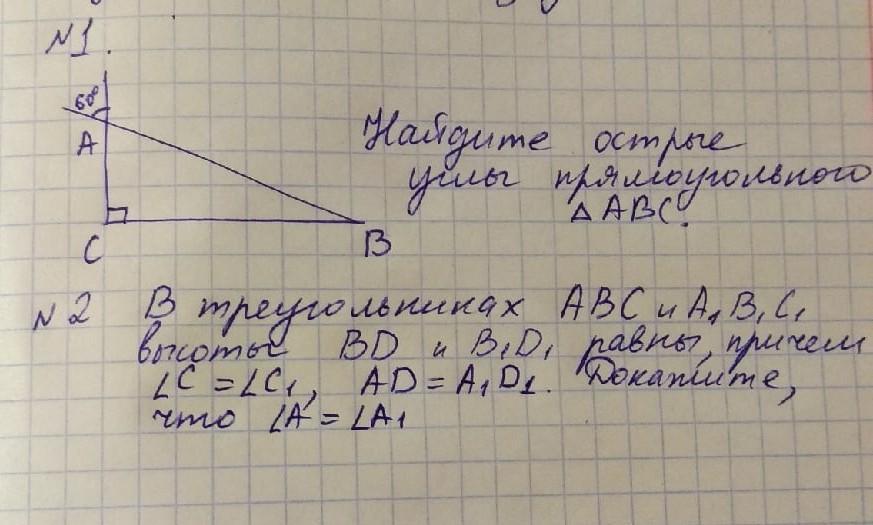 N1.
60°
A
C
B
Найдите острые
углы прямоугольного
△ABC.
N2 В треугольниках ABC и A₁B₁C₁
высоты BD и B₁D₁ равны, причем
∠C = ∠C₁, AD = A₁D₁. Докажите,
что ∠A = ∠A₁